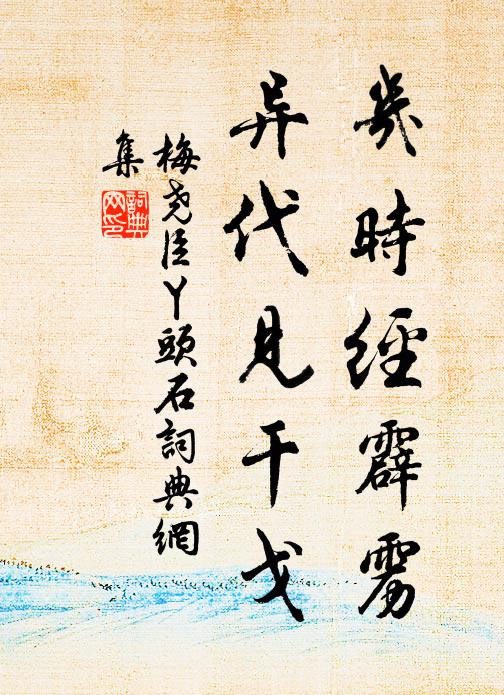 幾時經霹雳
异代見干戈
梅堯臣丫頭石詞典網
集
詞典
网印